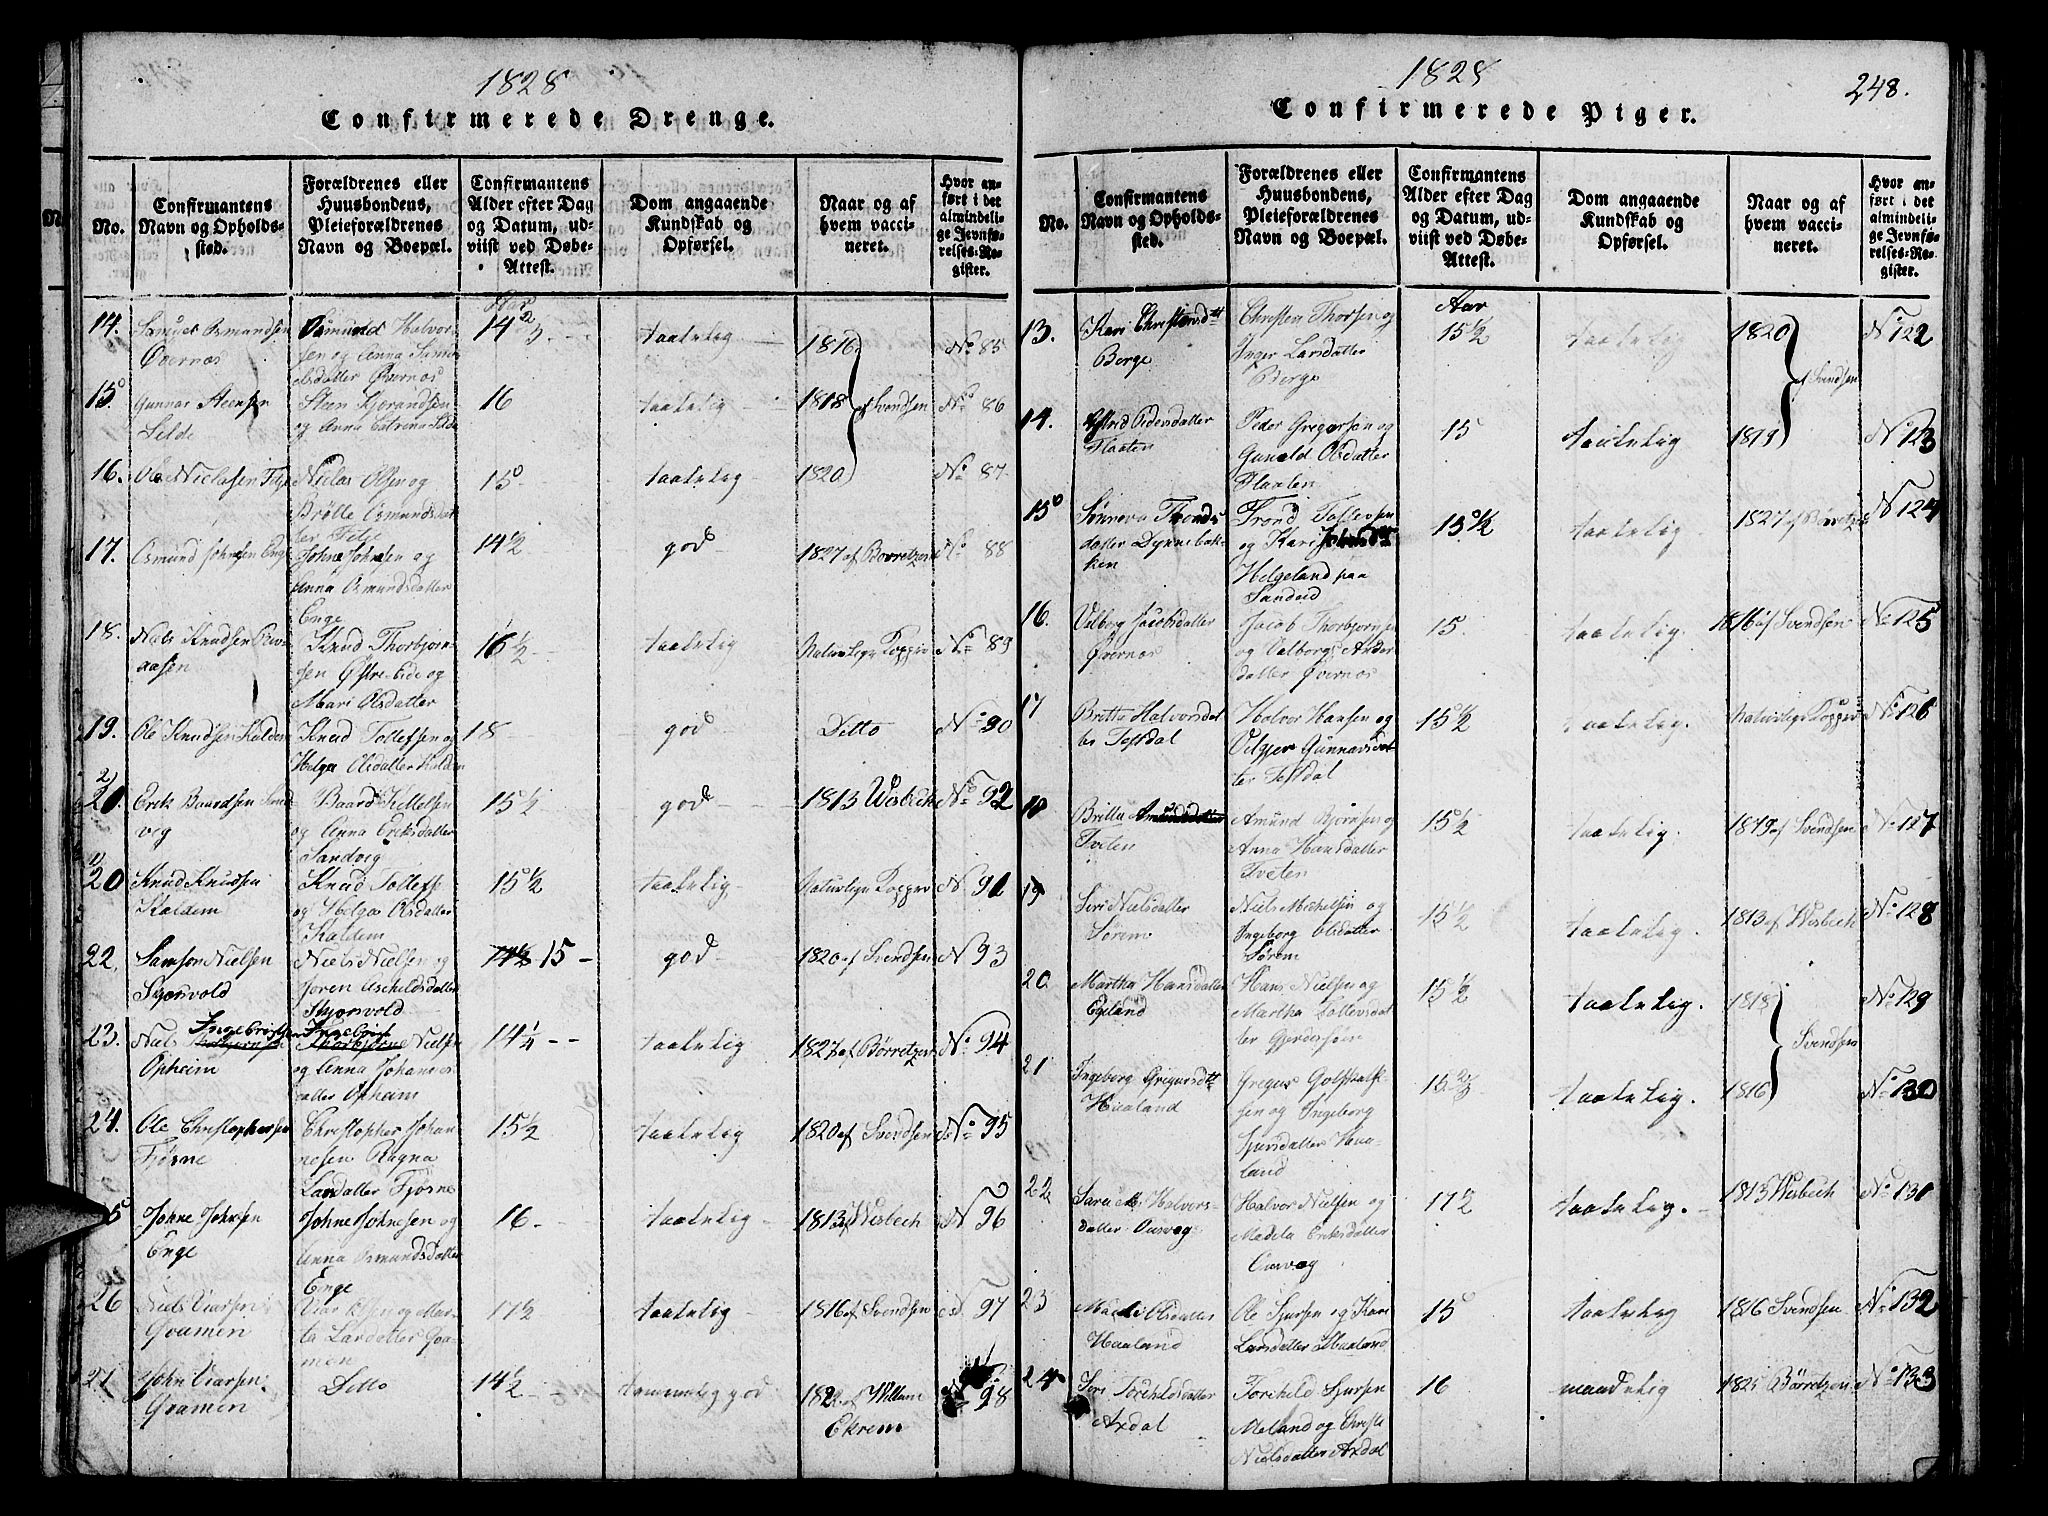 1828
Confirmerede Drenge.
No.
Confirmantens Navn og Opholdssted.
Forældrenes eller Huusbondens, Pleieforældrenes Navn og Boepæl.
Confirmantens Alder efter Dag og Datum, udviist ved Døbe-Attest.
Dom angaaende Kundskab og Opførsel.
Naar og af hvem vaccineret.
Hvor anført i det almindelige Jevnførelses-Register.
Aar
14. Osmundsen Øvernæs
Osmund Halvorsen og Anna Samuelsdatter Øvernæs
14 2/3
taalelig
1816
No 85
15. Gunnar Steensen Silde
Steen Kjorandsen og Anna Catrina Silde
16
taalelig
1818 af Svendsen
No 86
16. Ole Niclasen
Niclas Olsen og Brølle Osmundsdatter
15
taalelig
1820
No 87
17. Osmund Johnsen Enge
Johne Johnsen og Anna Osmundsdatter Enge
14 1/2
god
1827 af Børretzen
No 88
18. Niels Knudsen
Knud Thorbjørnsen Østrebide og Mari Olsdatter
16 1/2
taalelig
Naturlige Kopper
No 89
19. Ole Knudsen Kaldem
Knud Tollefsen og Helga Olsdatter Kaldem
18
god
Ditto
No 90
2) 21. Erik Baardsen Sandvig
Baard Kittelsen og Anna Eriksdatter Sandvig
15 1/2
god
1813 Wesbech
No 92
1) 20 Knud Knudsen Kaldem
Knud Tollefse og Helga Olsdatter Kaldem
15 1/2
taalelig
Naturlige Kopper
No 91
22. Samson Nielsen Skjorvold
Niels Nielsen og Joren Aschildsdatter Skjorvold
14 1/2 15
god
1820 af Svendsen
No 93
23. Niels Ingebrigtsen Opheim
Ingebrigt Thorbjørn Nielsen og Anna Johannesdatter Opheim
14 1/4
taalelig
1827 af Børretzen
No 94
24. Ole Christophersen Fjørne
Christopher Johannesen Ragna Larsdatter Fjørne
15 1/2
taalelig
1820 af Svendsen
No 95
5 Johne Johnsen Enge
Johne Johnesen og Anna Osmundsdatter Enge
16
taalelig
1813 af Wesbech
No 96
26 Niels Viarsen Qvamen
Viar Olsen og Marta Larsdatter Qvamen
17 1/2
taalelig
1816 af Svendsen
No 97
27 John Viarsen Qvamen
Ditto
14 1/2
temmelig god
af Willum Ekrem
No 98
1828
248.
Confirmerede Piger.
No.
Confirmantens Navn og Opholdssted.
Forældrenes eller Huusbondens, Pleieforældrenes Navn og Boepæl.
Confirmantens Alder efter Dag og Datum, udviist ved Døbe-Attest.
Dom angaaende Kundskab og Opførsel.
Naar og af hvem vaccineret.
Hvor anført i det almindelige Jevnførelses-Register.
Aar
13. Kari Christensdtt Berge
Christen Thorsen og Inger Larsdatter Berge
15 1/2
taalelig
1820
af Svendsen
No 122
14. Pedersdatter Flaaten
Peder Gregersen og Gunild Olsdatter Flaaten
15
taalelig
1819
No 123
15 Sønneva Tronds datter Dynnebakken
Trond Tollevsen og Kari Helgeland paa Sandeid
15 1/2
taalelig
1827 af Børretzen
No 124
16. Valborg Jacobsdatter Øvernæs
Jacob Thorbjørnsen og Valborg Andersdatter Øvernæs
15.
taalelig.
1816 af Svendsen
No 125
17 Britta Halvorsdatter Tessdal
Halvor Hansen og Gunnarsdatter Tessdal
15 1/2
taalelig.
Naturlige Kopper
No 126
18 Britta Amundsdatter Tveten
Amund Bjørnsen og Anna Hansdatter Tveten
15 1/2
taalelig.
1819 af Svendsen
No 127
19 Siri Nielsdatter Sørem
Niels Michelsen og Ingeborg Olsdatter Sørem
15 1/2
taalelig.
1813 af Wesbech
No 128
20. Martha Hansdatter Egeland
Hans Nielsen og Martha Tollevsdatter
15 1/2
taalelig.
1818
Svendsen
No 129
21 Ingeborg Gregersdtt Haaland
Gregers og Ingeborg Sjursdatter Haaland
15 2/3
taalelig.
1816
No 130
22 Sara M. Halvorsdatter
Halvor Nielsen og Madela Eriksdatter
17 1/2
taalelig.
1813 Wesbech
No 131
23 Olsdatter Haaland
Ole Sjursen og Kari Larsdatter Haaland
15
taalelig
1816 Svendsen
No 132
24 Siri Torchildsdatter Axdal
Torchild Sjursen Meland og Christi Nielsdatter Axdal
16
maadelig
1825 Børretzen
No 133